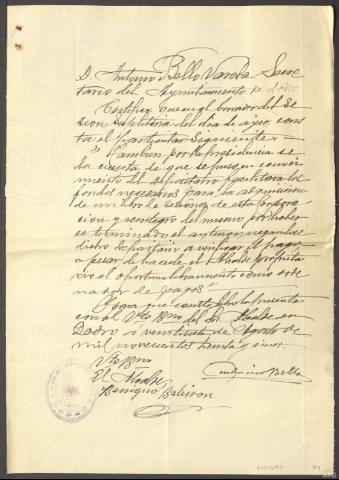 D. Antonio Bello Varela Secre
tario del Ayuntamiento de Dodro
Certifico: Que en el borrador del se
sion supletoria del dia de ayer, cons
ta el particular siguiente =
"Tambien por la Presidencia se
da cuenta de que
del Depositario facilitara los
fondos necesarios para la adquisicion
de un libro de sesiones de esta Corpora
cion y reintegro del mismo por haber
se terminado el anterior negandose
dicho Depositario a verificar el pago
a pesar de hacerle el Alcalde
el oportuno libramiento como orde
nador de pagos"
Y para que conste libro la presente
con el Vto Bno del Sr. Alcalde en
Dodro a veintisiete de Agosto de
mil novecientos treinta y cinco.
Vto Bno
El Alcalde
Antonio Bello